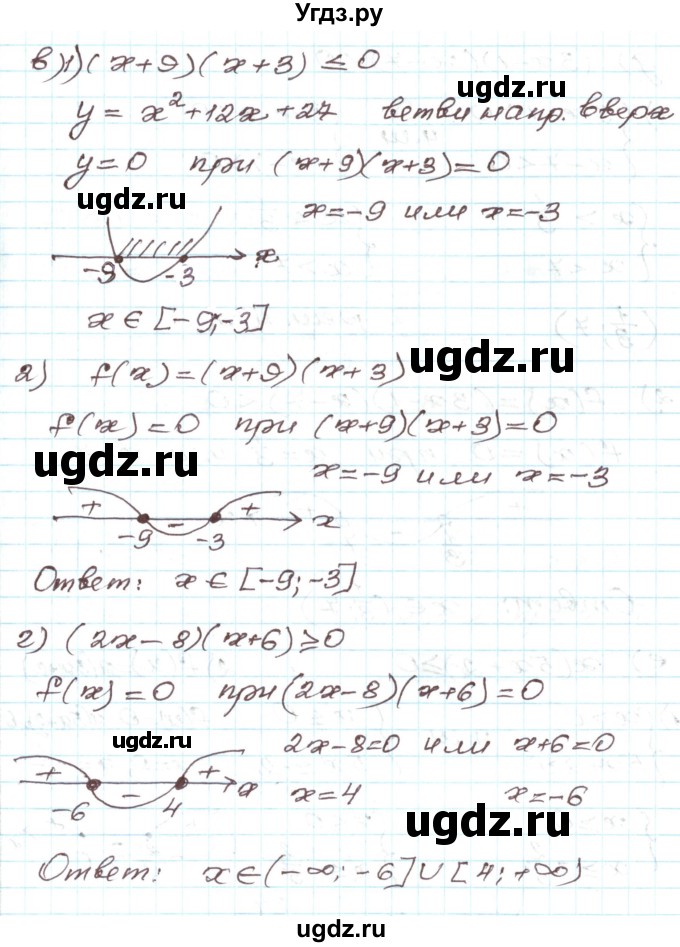 Угдз.ру
в) 1) (x+9)(x+3) ≤ 0
ugdz.ru
y = x²+12x+27 ветви напр. вверх
y=0 при (x+9)(x+3)=0
ugdz.ru
x=-9 или x=-3
-9 -3 x
x ∈ [-9;-3]
ugdz.ru
2) f(x)=(x+9)(x+3)
f(x)=0 при (x+9)(x+3)=0
ugdz.ru
x=-9 или x=-3
+ - + x
-9 -3
Ответ: x ∈ [-9; -3]
г) (2x-8)(x+6) ≥ 0
f(x)=0 при (2x-8)(x+6)=0
ugdz.ru
2x-8=0 или x+6=0
+ - + x
-6 4
x=4 x=-6
ugdz.ru
Ответ: x∈(-∞; -6]∪[4; +∞)
ugdz.ru